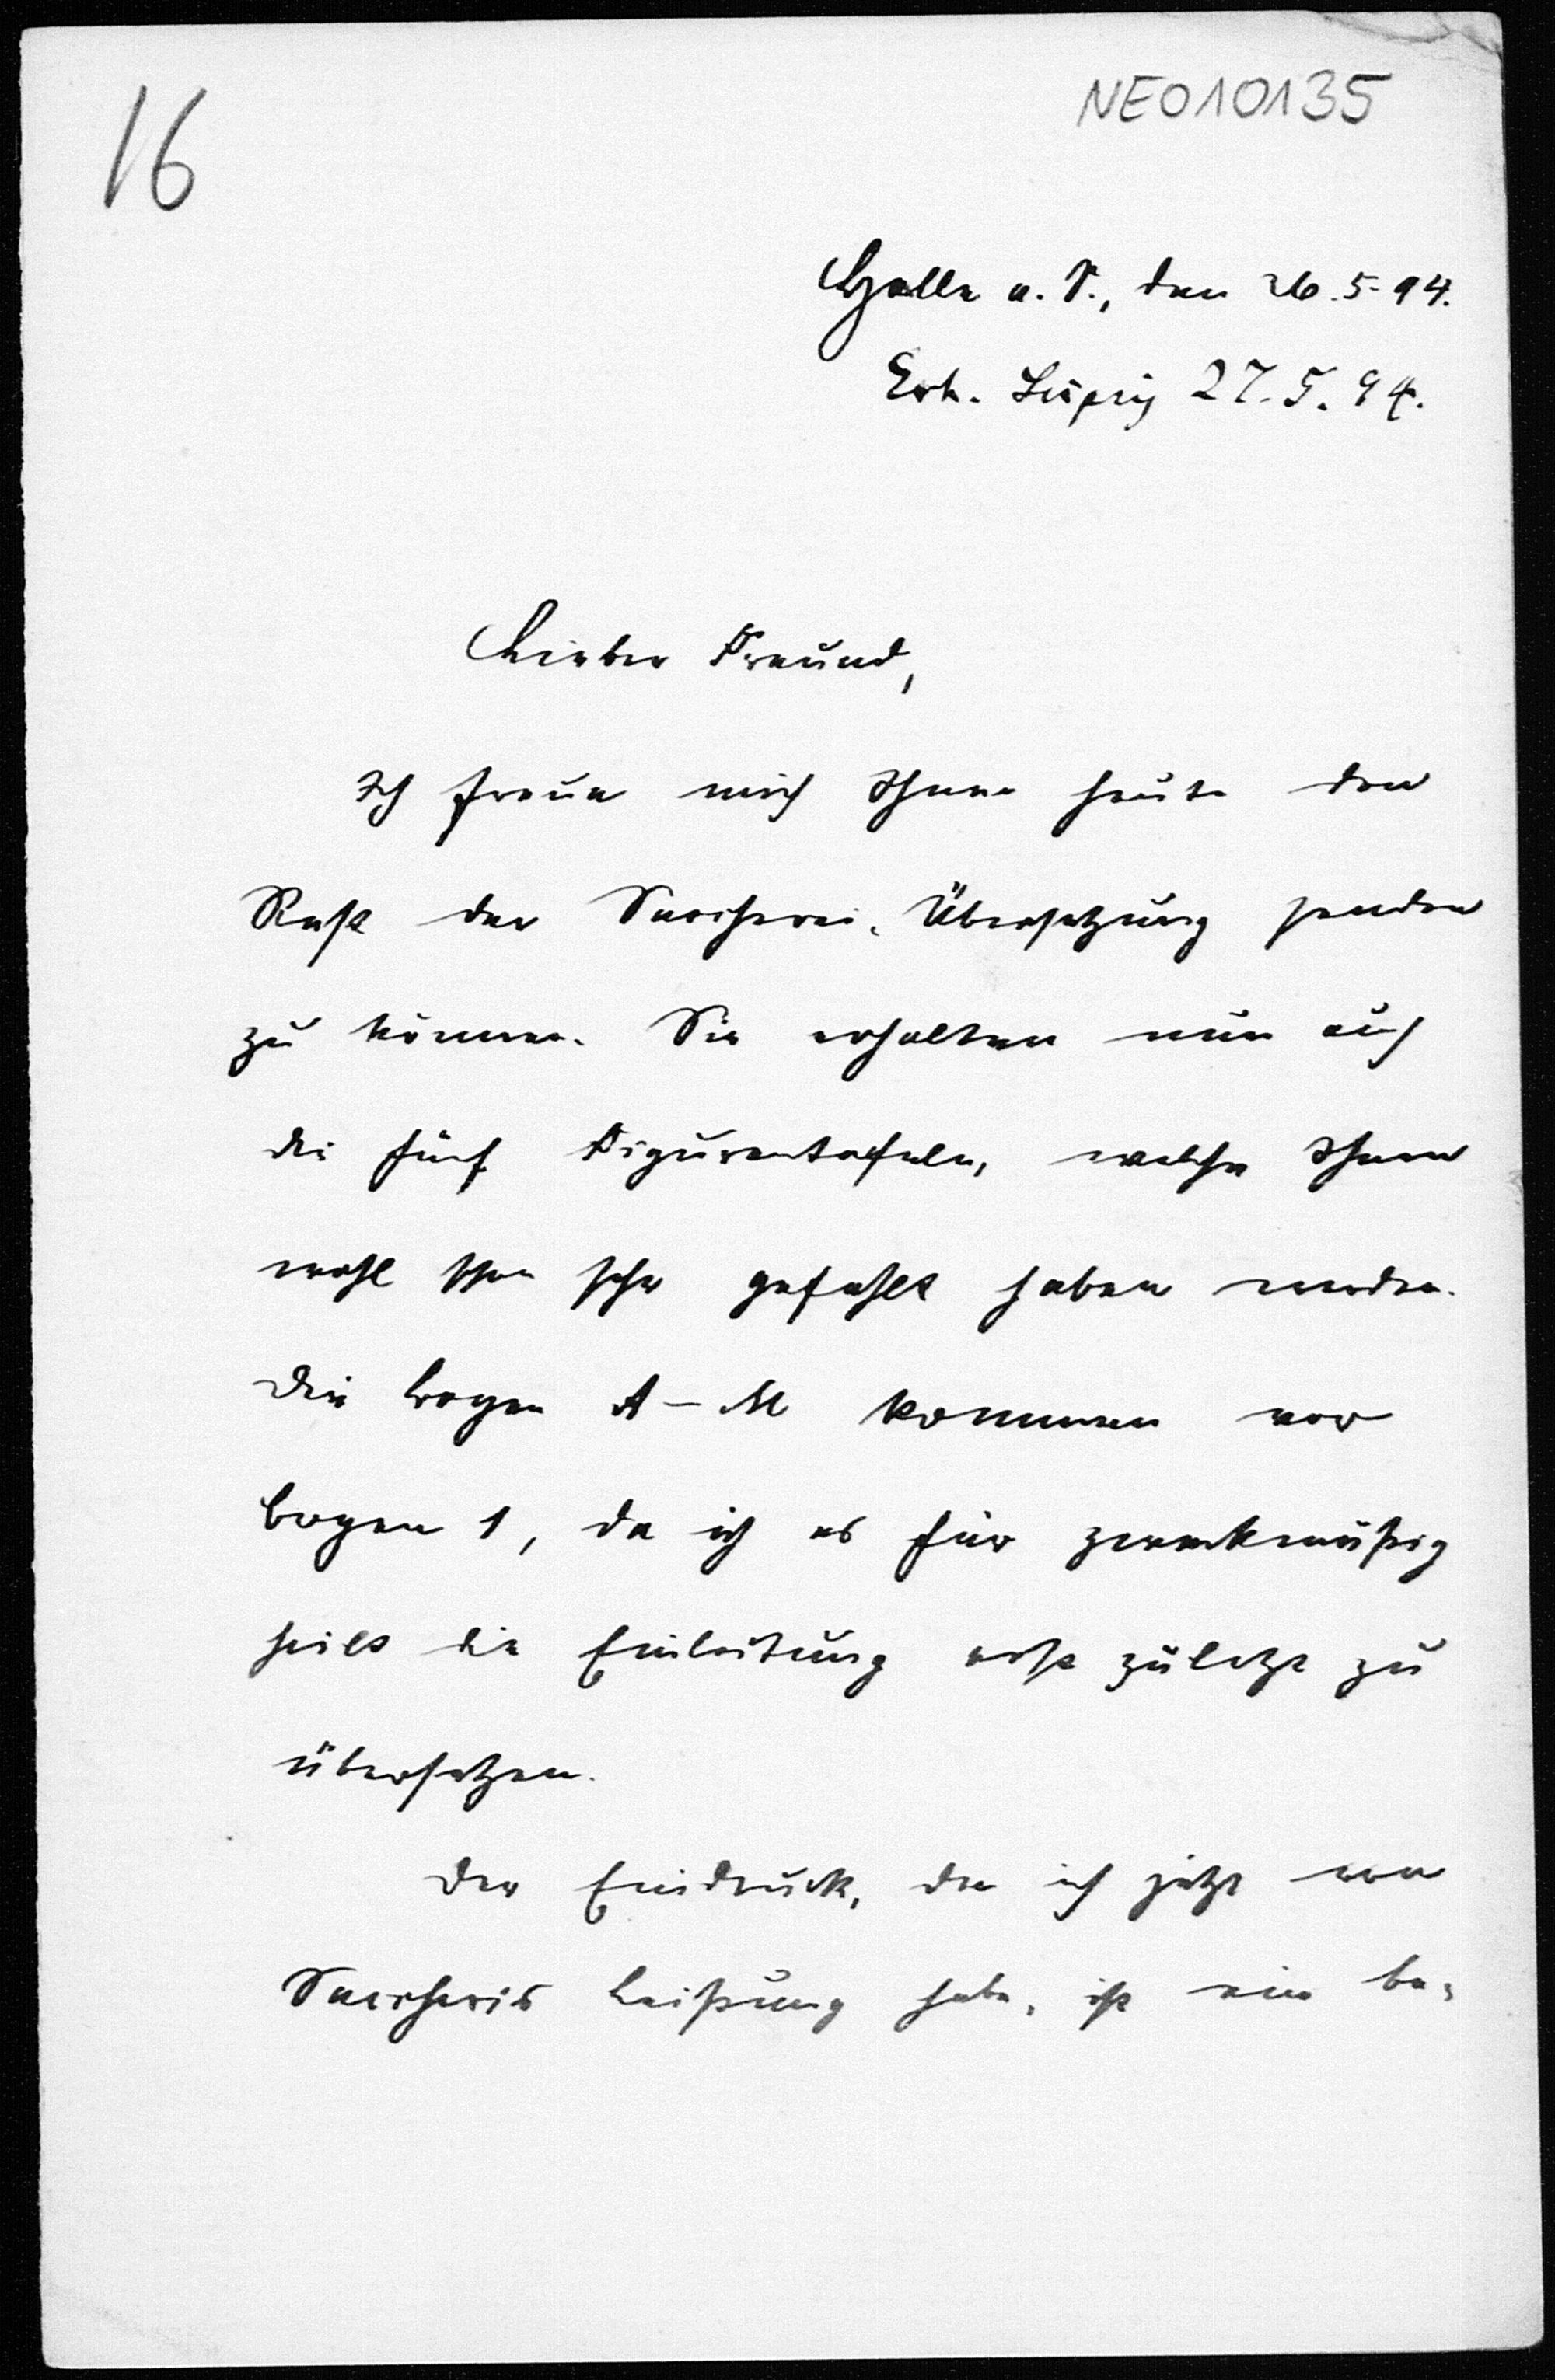 16
NE010135
Halle a. S., den 26. 5. 94.
Erh. Leipzig 27. 5. 94.
Lieber Freund,
Ich freue mich Ihnen heute den
Rest der Saccheri-Übersetzung senden
zu können. Sie erhalten nun auch
die fünf Figurentafeln, welche Ihnen
wohl schon sehr gefehlt haben werden.
Die Bogen A–M kommen vor
Bogen 1, da ich es für zweckmäßig
hielt die Einleitung erst zuletzt zu
übersetzen.
Der Eindruck, den ich jetzt von
Saccheris Leistung habe, ist ein be-